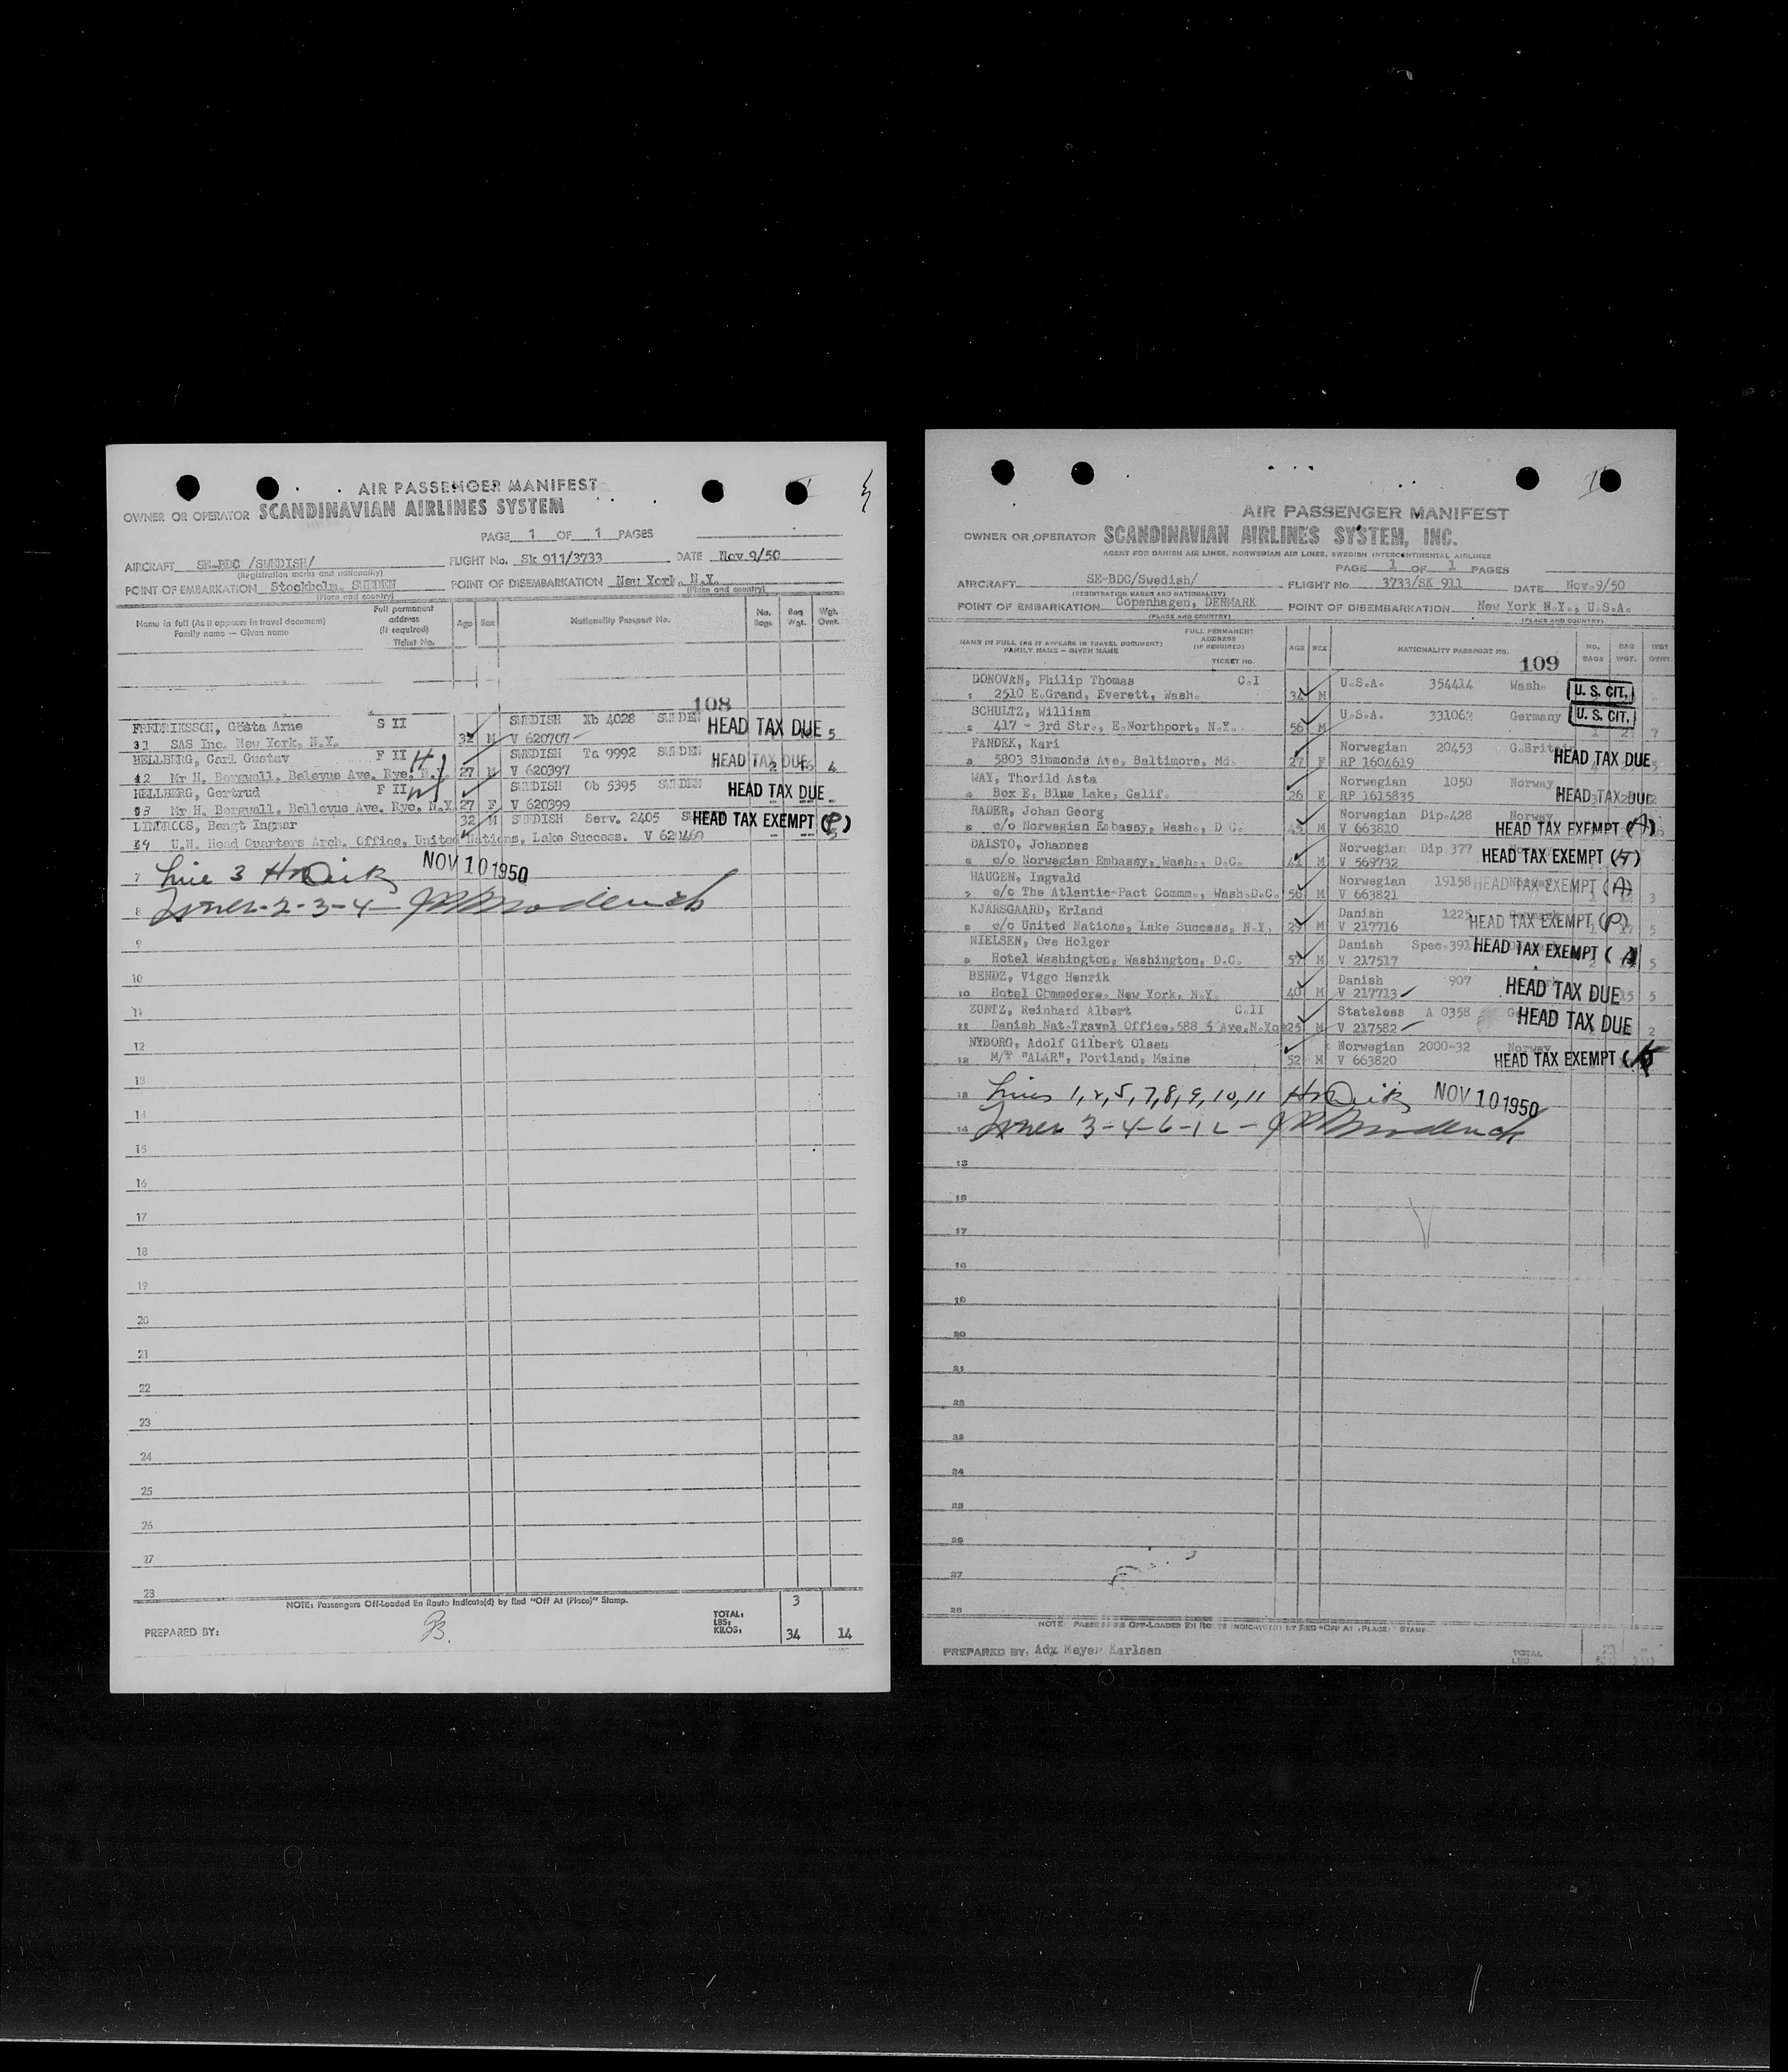 AIR PASSENGER MANIFEST
OWNER OR OPERATOR SCANDINAVIAN AIRLINES SYSTEM
PAGE 1 OF 1 PAGES
AIRCRAFT SE-BDC /SWEDISH/ FLIGHT No. Sk 911/3733 DATE Nov 9/50
(Registration marks and nationality)
POINT OF EMBARKATION Stockholm, SWEDEN POINT OF DISEMBARKATION New York, N.Y.
(Place and country) (Place and country)
Name in full (As it appears in travel document) Family name — Given name Full permanent address (If required) Ticket No. Age Sex Nationality Passport No. No. Bags Bag Wgt. Wgt. Ovnt.
108
FREDRIKSSON, Gösta Arne S II SWEDISH Xb 4028 SWEDEN HEAD TAX DUE 5
SAS Inc. New York, N.Y. 32 M V 620707
HELLBERG, Carl Gustav F II SWEDISH Ta 9992 SWEDEN HEAD TAX DUE 4
Mr H. Bergwall, Belevue Ave. Rye, N.Y. 27 M V 620397
HELLBERG, Gertrud F II SWEDISH Ob 5395 SWEDEN HEAD TAX DUE
Mr H. Bergwall, Bellevue Ave. Rye, N.Y. 27 F V 620399
LINDROOS, Bengt Ingmar 32 M SWEDISH Serv. 2405 HEAD TAX EXEMPT (P)
U.N. Head Quarters Arch. Office, United Nations, Lake Success. V 621469
7 Line 3 NOV 10 1950
8 2-3-4
9
10
11
12
13
14
15
16
17
18
19
20
21
22
23
24
25
26
27
28
NOTE: Passengers Off-Loaded En Route Indicate(d) by Red "Off At (Place)" Stamp. 3
PREPARED BY: TOTAL: LBS: KILOS: 34 14
AIR PASSENGER MANIFEST
OWNER OR OPERATOR SCANDINAVIAN AIRLINES SYSTEM, INC.
AGENT FOR DANISH AIR LINES, NORWEGIAN AIR LINES, SWEDISH INTERCONTINENTAL AIRLINES
PAGE 1 OF 1 PAGES
AIRCRAFT SE-BDC/Swedish/ FLIGHT No 3733/SK 911 DATE Nov.9/50
(REGISTRATION MARKS AND NATIONALITY)
POINT OF EMBARKATION Copenhagen, DENMARK POINT OF DISEMBARKATION New York N.Y., U.S.A.
(PLACE AND COUNTRY) (PLACE AND COUNTRY)
NAME IN FULL (AS IT APPEARS IN TRAVEL DOCUMENT) FAMILY NAME — GIVEN NAME FULL PERMANENT ADDRESS (IF REQUIRED) TICKET NO. AGE SEX NATIONALITY PASSPORT NO. NO. BAGS BAG WGT. WGT OVNT.
109
DONOVAN, Philip Thomas C.I U.S.A. 354414 Wash. U. S. CIT.
1 2510 E.Grand, Everett, Wash. 34 M
SCHULTZ, William U.S.A. 331062 Germany U. S. CIT.
2 417 - 3rd Str., E.Northport, N.Y. 56 M 7
FANDEK, Kari Norwegian 20453 G.Britain HEAD TAX DUE
3 5803 Simmonds Ave, Baltimore, Md. 27 F RP 1604619
WAY, Thorild Asta Norwegian 1050 Norway HEAD TAX DUE
4 Box E, Blue Lake, Calif. 26 F RP 1615835
RADER, Johan Georg Norwegian Dip.428 HEAD TAX EXEMPT (A)
5 c/o Norwegian Embassy, Wash, D C. 45 M V 663810
DALSTO, Johannes Norwegian Dip.377 HEAD TAX EXEMPT
6 c/o Norwegian Embassy, Wash., D.C. 41 M V 569732
HAUGEN, Ingvald Norwegian 19158 HEAD TAX EXEMPT (A)
7 c/o The Atlantic-Pact Comme., Wash.D.C. 56 M V 663821 3
KJÄRSGAARD, Erland Danish 1225 HEAD TAX EXEMPT (P)
8 c/o United Nations, Lake Success, N.Y. 29 M V 217716 5
NIELSEN, Ove Holger Danish Spec.391 HEAD TAX EXEMPT (A)
9 Hotel Washington, Washington, D.C. 57 M V 217517 5
BENDZ, Viggo Henrik Danish 907 HEAD TAX DUE
10 Hotel Commodore, New York, N.Y. 40 M V 217713 15 5
ZUNTZ, Reinhard Albert C.II Stateless A 0358 HEAD TAX DUE
11 Danish Nat.Travel Office,588 5 Ave.N.Yo 25 M V 217582 2
NYBORG, Adolf Gilbert Olsen Norwegian 2000-32 Norway
12 M/T "ALAR", Portland, Maine 52 M V 663820 HEAD TAX EXEMPT
13 Lines 1,2,5,7,8,9,10,11 NOV 10 1950
14 3-4-6-12
15
16
17
18
19
20
21
22
23
24
25
26
27
28
NOTE PASSENGERS OFF-LOADED EN ROUTE INDICATE(D) BY RED "OFF AT (PLACE)" STAMP.
PREPARED BY: Ady Meyer Karlsen TOTAL LBS.